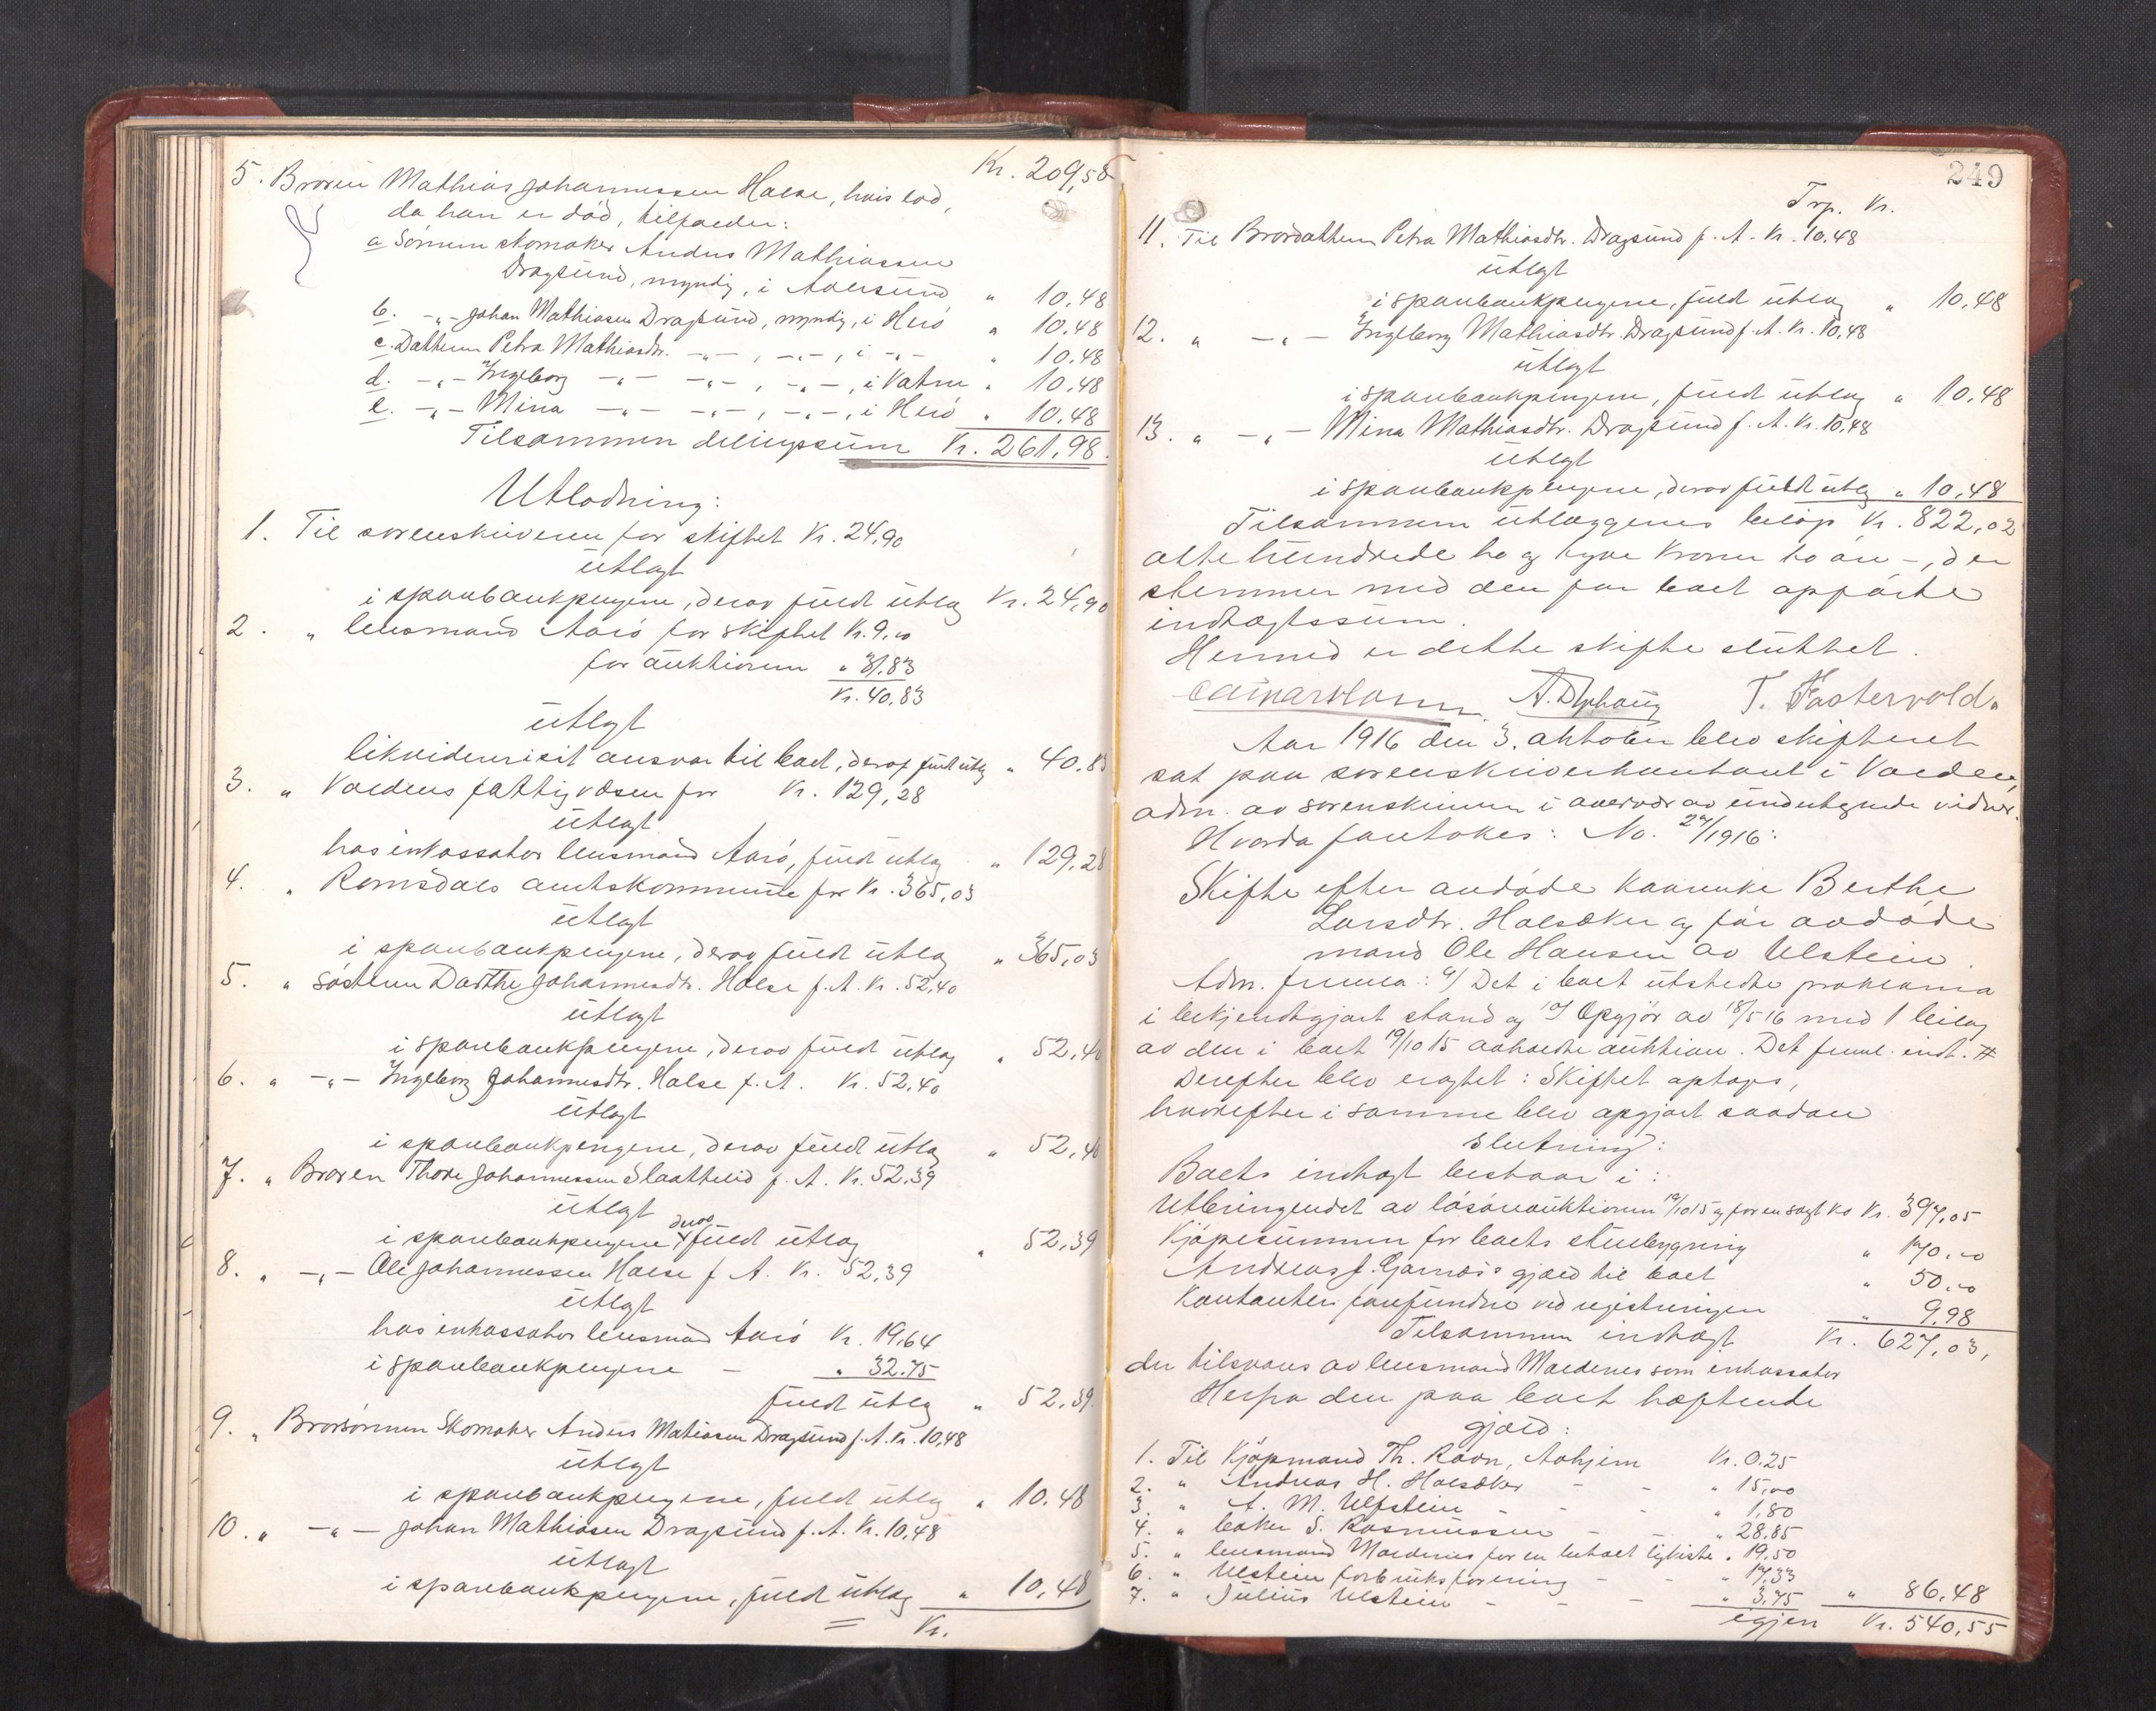 Kr. 209,58
5. Broren Mathias Johannessen Halse, hvis lod,
da han er død, tilfalder:
a Sønnen skomaker Anders Mathiassen
Dragsund, myndig, i Aalesund " 10.48
b. -"- Johan Mathiasen Dragsund, myndig, i Herø " 10.48
c. Datteren Petra Mathiasdtr. -"-, -"-, i -"- " 10.48
d. -"- Ingeborg -"- -"-, -"-, i Vatne " 10.48
e. -"- Mina -"- -"-, -"-, i Herø " 10.48
Tilsammen delingssum Kr. 261,98.
Utlodning:
1. Til sorenskriveren for skiftet Kr. 24,90
utlagt
i sparebankpengene, derav fuldt utlag Kr. 24,90
2. " lensmand Aarø for skiftet Kr. 9,00
for auktionen " 31.83
Kr. 40,83
utlagt
likviderer sit ansvar til boet, derav fuldt utlag " 40.83
3. " Voldens fattigvæsen for Kr. 129,28
utlagt
hos inkassator lensmand Aarø, fuldt utlag " 129,28
4. " Romsdals amtskommune for Kr. 365,03
utlagt
i sparebankpengene, derav fuldt utlag " 365,03
5. " Søsteren Dorthe Johannesdtr. Halse f. A. Kr. 52,40
utlagt
i sparebankpengene, derav fuldt utlag " 52,40
6. " -"- Ingeborg Johannesdtr. Halse f. A. Kr. 52,40
utlagt
i sparebankpengene, derav fuldt utlag " 52,40
7. " Broren Thore Johannessen Slaattelid f. A. Kr. 52.39
utlagt
i sparebankpengene derav fuldt utlag " 52,39
8. " -"- Ole Johannessen Halse f A. Kr. 52,39
utlagt
hos inkassator lensmand Aarø Kr. 19,64
i sparebankpengene - " 32.75
fuldt utlag " 52,39.
9. " Brorsønnen Skomaker Anders Matiasen Dragsund f. A. Kr. 10,48
utlagt
i sparebankpengene, fuldt utlag " 10.48
10. " -"- Johan Mathiasen Dragsund f. A. Kr. 10,48
utlagt
i sparebankpengene, fuldt utlag " 10.48
Kr.
249
Trp. Kr.
11. Til Brordatteren Petra Mathiasdtr. Dragsund f. A. Kr. 10.48
utlagt
i sparebankpengene, fuldt utlag " 10.48
12. " -"- Ingeborg Mathiasdtr. Dragsund f. A. Kr. 10.48
utlagt
i sparebankpengene, fuldt utlag " 10.48
13. " -"- Mina Mathiasdtr. Dragsund f. A. Kr. 10,48
utlagt
i sparebankpengene, derav fuldt utlag " 10,48
Tilsammen utlæggenes beløp Kr. 822,02
otte hundrede to og tyve kroner to øre -, der
stemmer med den for boet opførte
indtægtssum.
Hermed er dette skifte sluttet.
T. Fastervold.
Aar 1916 den 3. oktober blev skifteret
sat paa sorenskriverkontoret i Volden,
adm. av sorenskriveren i overvær av undertegnede vidner.
Hvorda foretokes: No. 27/1916:
Skifte efter avdøde kaarenke Berthe
Larsdtr. Halsæker og før avdøde
mand Ole Hansen av Ulstein.
Adm. fremla: a/ Det i boet utstedte proklama
i bekjendtgjort stand og b/ Opgjør av 18/5 16 med 1 bilag
av den i boet 19/10 15 avholdte auktion. Det freml. indt. #
Derefter blev eragtet: Skiftet optages,
hvorefter i samme blev opgjort saadan
slutning:
Boets indtægt bestaar i:
Utbringendet av løsøreauktionen 19/10 15 og for en solgt ko Kr. 397,05
Kjøpesummen for boets stuebygning " 170.00
Andreas J. Garnæs's gjæld til boet " 50.00
Kontanter forefundne ved registreringen " 9.98
Tilsammen indtægt Kr. 627,03,
der tilsvares av lensmand Moldenes som inkassator
Herfra den paa boet hæftende
gjæld:
1. Til Kjøpmand Th. Ravn, Aahjem Kr. 0.25
2. " Andreas H. Halsæker - - " 15,00
3. " A. M. Ulfstein - - " 1,80
4. " baker S. Rasmussen - - " 28.85
5. " lensmand Moldenes for en betalt ligkiste " 19,50
6. " Ulstein forbruksforening - - " 17,33
7. " Julius Ulstein - - - " 3,75 " 86.48
igjen Kr. 540,55